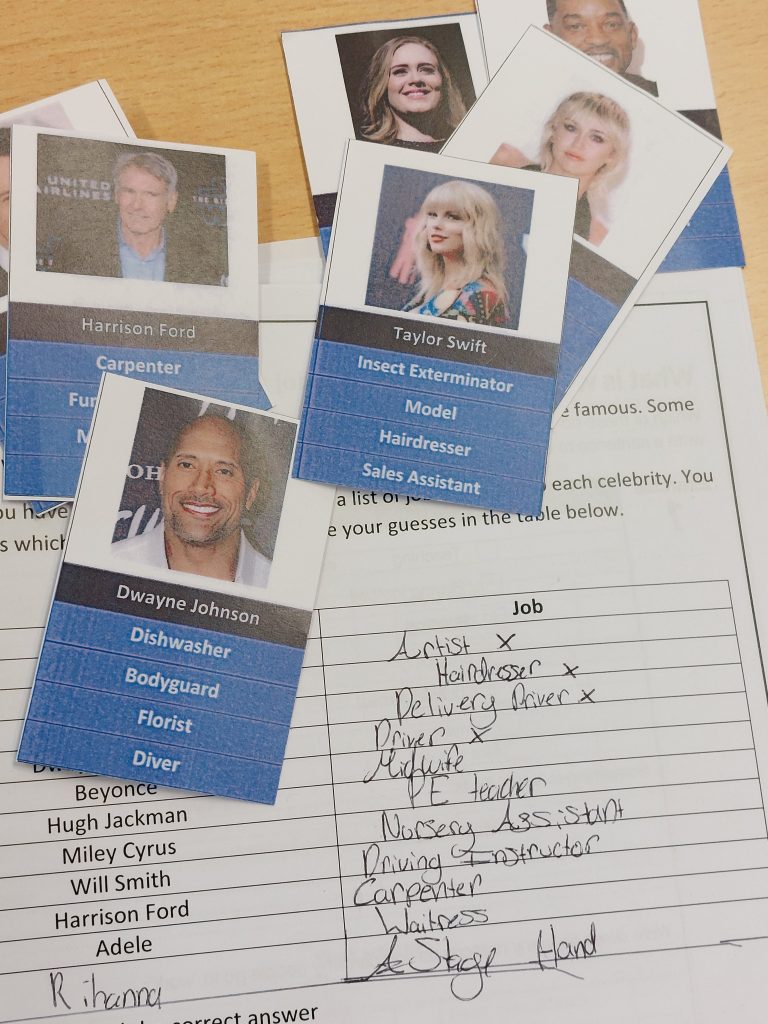 UNITED
AIRLINES
THE
Harrison Ford
Carpenter
Taylor Swift
Insect Exterminator
Model
Hairdresser
Sales Assistant
OH
Dwayne Johnson
Dishwasher
Bodyguard
Florist
Diver
famous. Some
a list of each celebrity. You
your guesses in the table below.
Job
Artist X
Hairdresser X
Delivery Driver X
Driver X
Midwife
Beyonce PE teacher
Hugh Jackman Nursery Assistant
Miley Cyrus Driving Instructor
Will Smith Carpenter
Harrison Ford Waitress
Adele A Stage Hand
Rihanna
correct answer